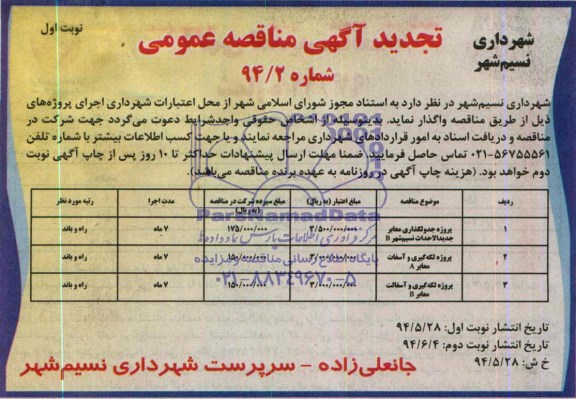 نوبت اول
شهرداری
نسیم‌شهر
تجدید آگهی مناقصه عمومی
شماره ۹۴/۲
شهرداری نسیم‌شهر در نظر دارد به استناد مجوز شورای اسلامی شهر از محل اعتبارات شهرداری اجرای پروژه‌های
ذیل از طریق مناقصه واگذار نماید. بدینوسیله از اشخاص حقوقی واجدشرایط دعوت می‌گردد جهت شرکت در
مناقصه و دریافت اسناد به امور قراردادهای شهرداری مراجعه نمایند و یا جهت کسب اطلاعات بیشتر با شماره تلفن
۰۲۱-۵۶۷۵۵۵۶۱ تماس حاصل فرمایید. ضمنا مهلت ارسال پیشنهادات حداکثر تا ۱۰ روز پس از چاپ آگهی نوبت
دوم خواهد بود. (هزینه چاپ آگهی در روزنامه به عهده برنده مناقصه می‌باشد).
ردیف موضوع مناقصه مبلغ اعتبار (به ریال) مبلغ سپرده شرکت در مناقصه (به ریال) مدت اجرا رتبه مورد نظر
۱ پروژه جدولگذاری معابر جدیدالاحداث نسیم‌شهر B ۳/۵۰۰/۰۰۰/۰۰۰ ۱۷۵/۰۰۰/۰۰۰ ۷ ماه راه و باند
۲ پروژه لکه‌گیری و آسفالت معابر A ۳/۰۰۰/۰۰۰/۰۰۰ ۱۵۰/۰۰۰/۰۰۰ ۷ ماه راه و باند
۳ پروژه لکه‌گیری و آسفالت معابر B ۳/۰۰۰/۰۰۰/۰۰۰ ۱۵۰/۰۰۰/۰۰۰ ۷ ماه راه و باند
ParsNamadData
مرکز فرآوری اطلاعات پارس نماد داده‌ها
پایگاه اطلاع رسانی مناقصه و مزایده
۰۲۱-۸۸۳۴۹۶۷۰-۵
تاریخ انتشار نوبت اول: ۹۴/۵/۲۸
تاریخ انتشار نوبت دوم: ۹۴/۶/۴
خ ش: ۹۴/۵/۲۸
جانعلی‌زاده - سرپرست شهرداری نسیم‌شهر